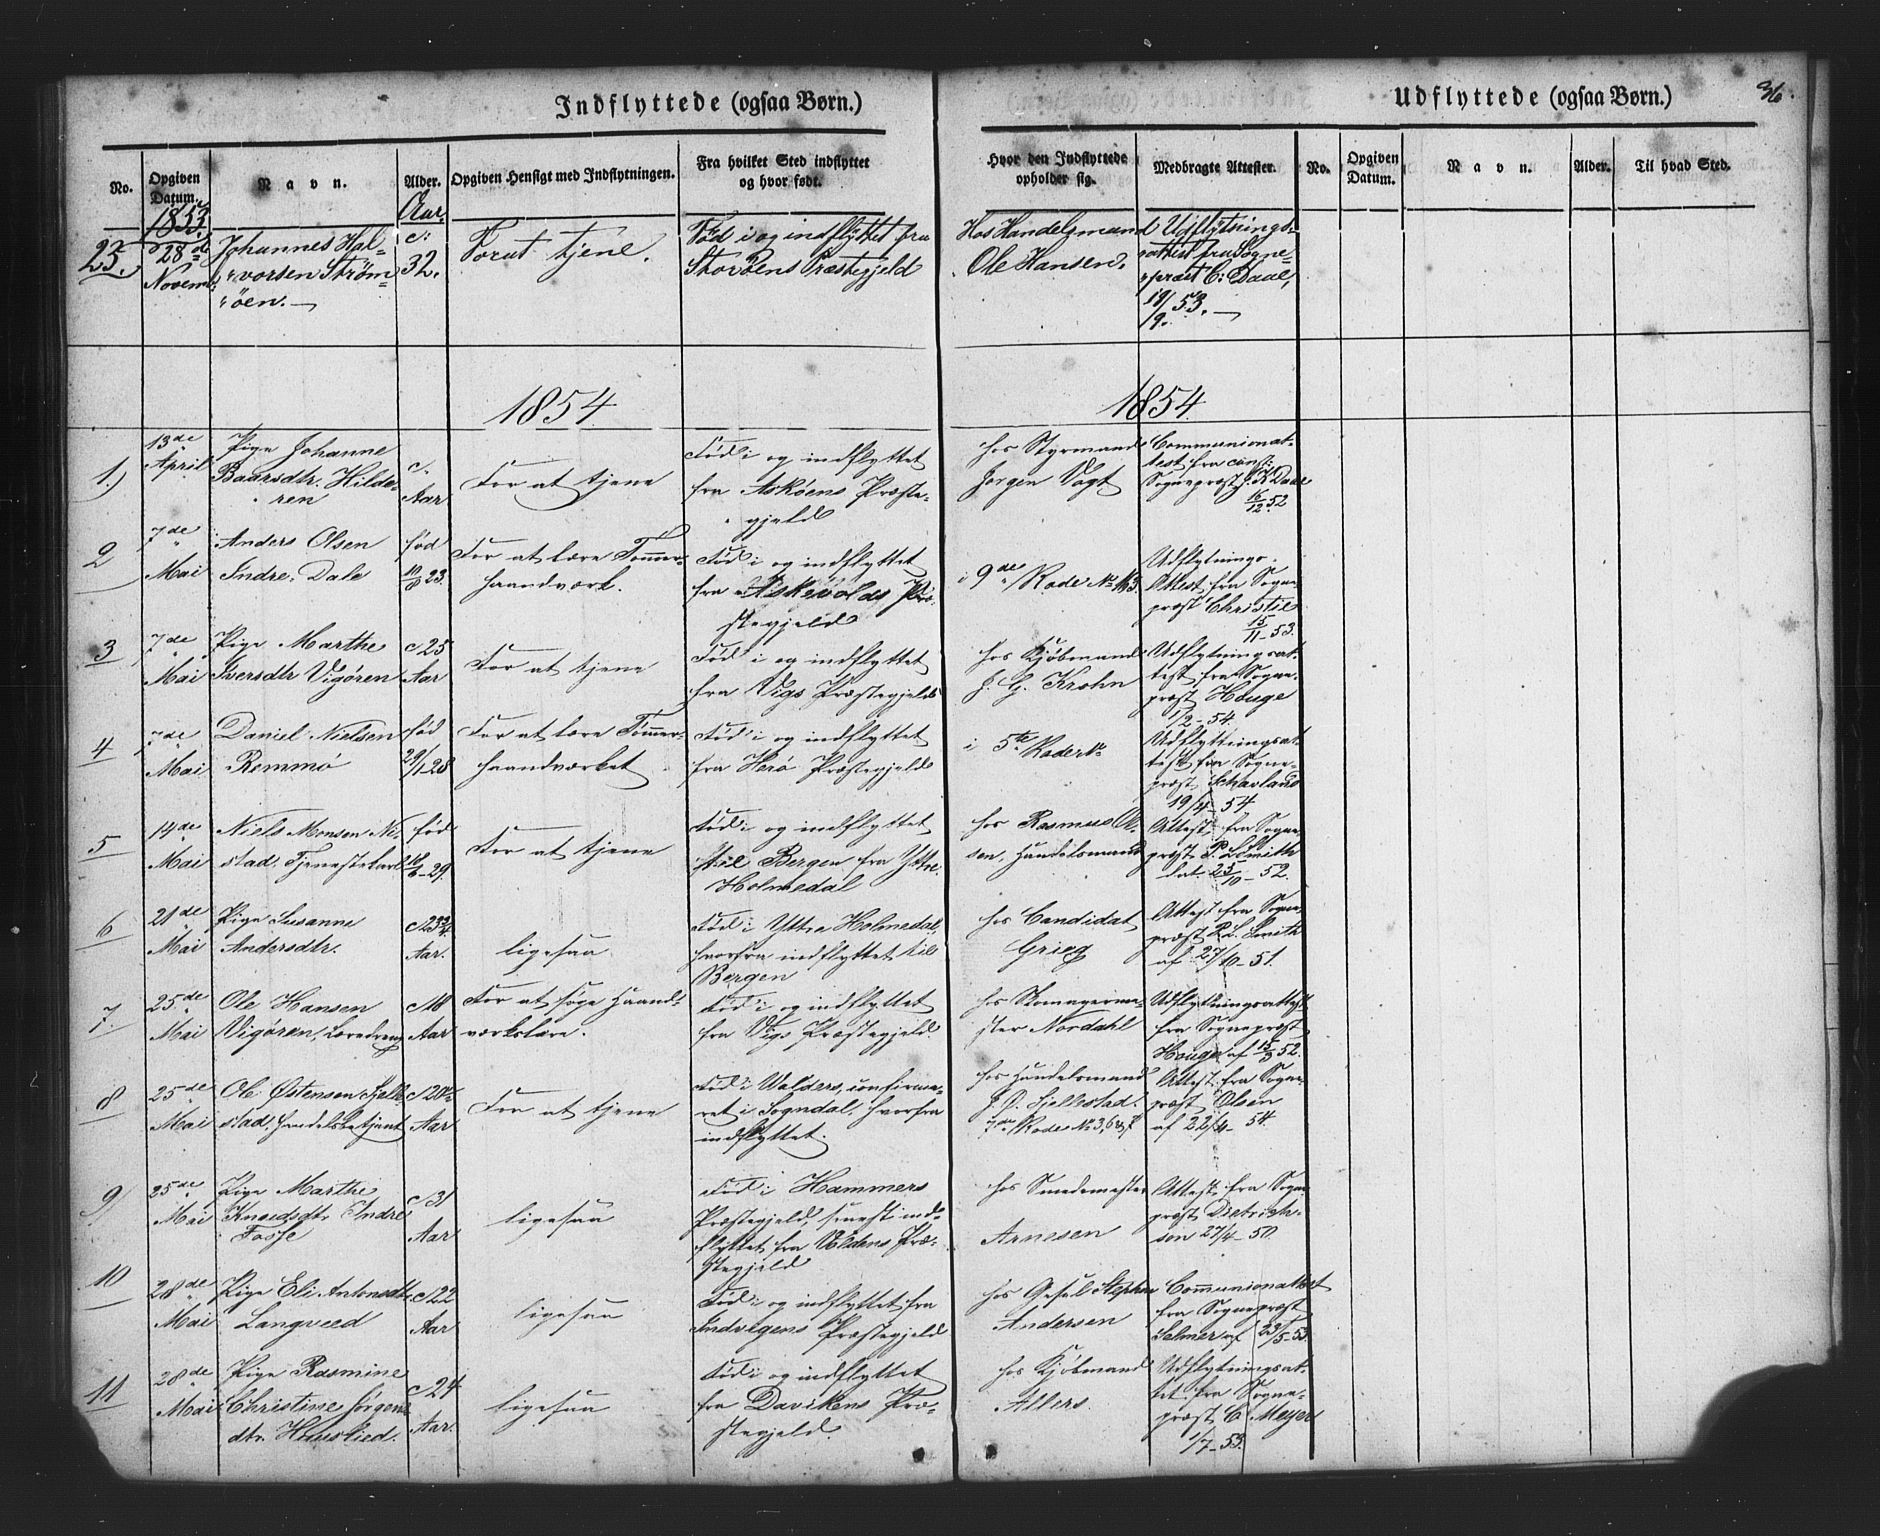 Indflyttede (ogsaa Børn.)
Udflyttede (ogsaa Børn.)
36.
No.
Opgiven Datum.
Navn.
Alder.
Opgiven Hensigt med Indflytningen.
Fra hvilket Sted indflyttet
og hvor født.
Hvor den Indflyttede
opholder sig.
Medbragte Attester.
No.
Opgiven Datum.
Navn.
Alder.
Til hvad Sted.
1853.
Aar.
25.
28d
Novemb:
Johannes Hal-
vorsen Strøm-
øen.
c:
32.
For at tjene.
Fød i og indflyttet fra
Storøens Præstegjeld
Hos Handelsmand
Ole Hansen.
Udflytnings-
attest fra Sogne-
præst C: Daae,
19/9. 53.
1854
1854
1.)
13de
April
Pige Johanne
Baarsdtr. Hilde-
ren
c.
Aar
For at tjene
Fød i og indflyttet
fra Askøens Præste-
gjeld
hos Styrmand
Jørgen Vogt
Communionat-
test fra const:
Sognepræst J. K. Daae
16/12 52
2
7de
Mai
Anders Olsen
Indre Dale
fød
23.
For at lære Tømmer-
haandværk.
Fød i og indflyttet
fra Askevolds Præ-
stegjeld
i 9de Rode No 113.
Udflytnings-
Attest fra Sogne-
præst Christie
15/11-53.
3
7de
Mai
Pige Marthe
Iversdtr Vigøren
c 25
Aar
For at tjene
Fød i og indflyttet
fra Vigs Præstegjeld
hos Kjøbmand
J. G. Krohn
Udflytningsat-
test fra Sogne-
præst Houge
1/2-54.
4
7de
Mai
Daniel Nielsen
Remmø
fød
29/1-28
For at lære Tømmer-
haandværket
Fød i og indflyttet
fra Herø Præstegjeld
i 5te Rode No
Udflyttningsat-
test fra Sogne-
præst Schavland
19/4-54
5
14de
Mai
Niels Monsen Ni-
stad. Tjenestekarl
fød
16/6-29.
For at tjene
Fød i og indflyttet
til Bergen fra Yttre
Holmedal
hos Rasmus Ol-
sen, Handelsmand
Attest fra Sogne-
præst P. L. Smith
dat. 25/10-52.
6
21de
Mai
Pige Susanne
Andersdtr.
c 23 3/4
Aar.
ligesaa
Fød i Yttre Holmedal,
hvorfra indflyttet til
Bergen
hos Candidat
Grieg
Attest fra Sogne-
præst P. L. Smith
af 27/10-51.
7.
25de
Mai
Ole Hansen
Vigøren, Læredreng
c 18
Aar
For at søge Haand-
værkslære.
Fød i og indflyttet
fra Vigs Præstegjeld.
hos Skomagerme-
ster Nordahl
Udflytningsattest
fra Sognepræst
Houge af 15/9 52.
8
25de
Mai
Ole Østensen Sjelle-
stad, Handelsbetjent
c 20
Aar
For at tjene
Fød i Valders, confirme-
ret i Sogndal, hvorfra
indflyttet.
hos Handelsmand
J. O. Sjellestad.
7de Rode No 3, 6
Attest fra Sogne-
præst Olsen
af 22/4-54.
9
25de
Mai
Pige Marthe
Knudsdtr Indre
Fosse
c 31
Aar
ligesaa
Fød i Hammers
Præstegjeld, senest ind-
flyttet fra Voldens Præ-
stegjeld
hos Smedemester
Arnesen
Attest fra Sogne-
præst Dietrich-
son 27/4-50.
10
28de
Mai
Pige Eli Antonsdtr
Langveed
c 22
Aar
ligesaa
Fød i og indflyttet fra
Indvigens Præstegjeld
hos Gesel Stephen
Andersen
Communionattest
fra Sognepræst
Selmer af 23/5-53.
11
28de
Mai
Pige Rasmine
Christine Jørgens
dtr. Huuslied.
c 24
Aar.
ligesaa
Fød i og indflyttet
fra Davikens Præ-
stegjeld.
hos Kjøbmand
Albers
Udflytningsat-
tet fra Sogne-
præst C. Meyer
1/7-53.